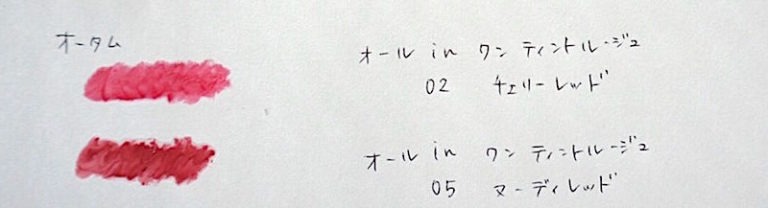 オータム
オール in ワン ティントルージュ
02 チェリーレッド
オール in ワン ティントルージュ
05 ヌーディレッド